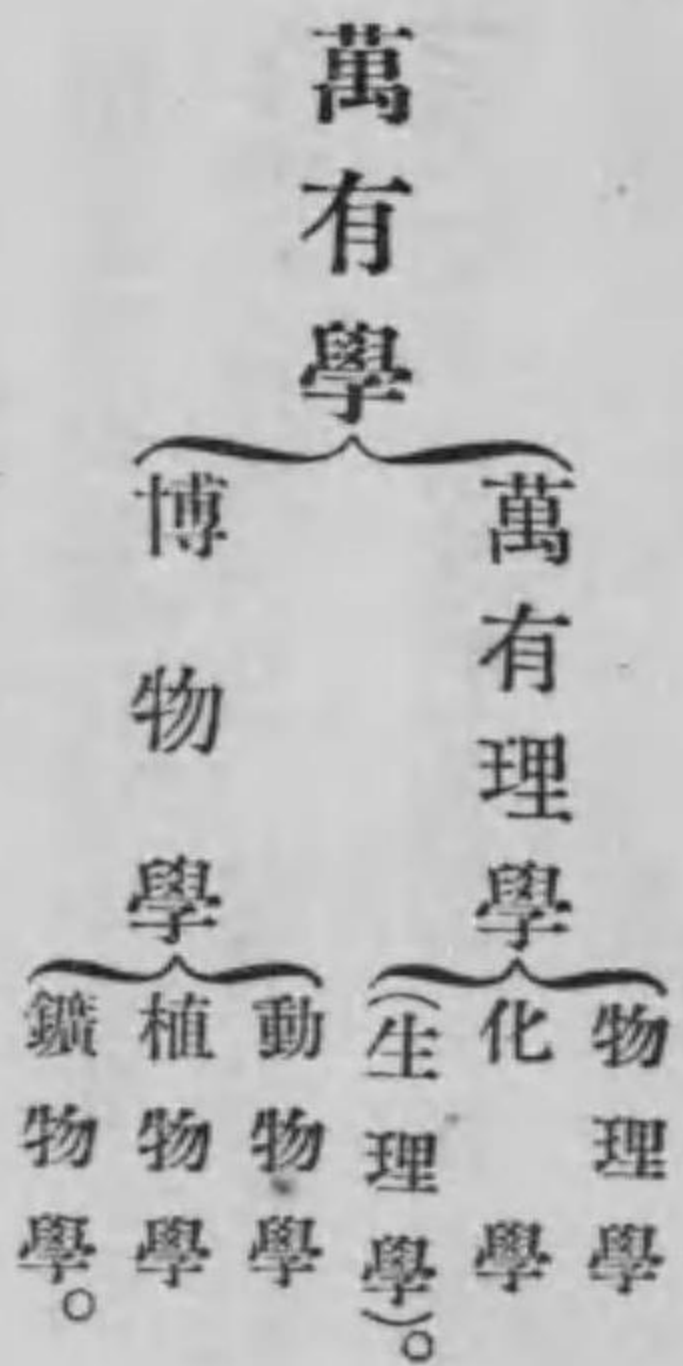 萬有學
萬有理學
物理學
化學
(生理學)。
博物學
動物學
植物學
鑛物學。